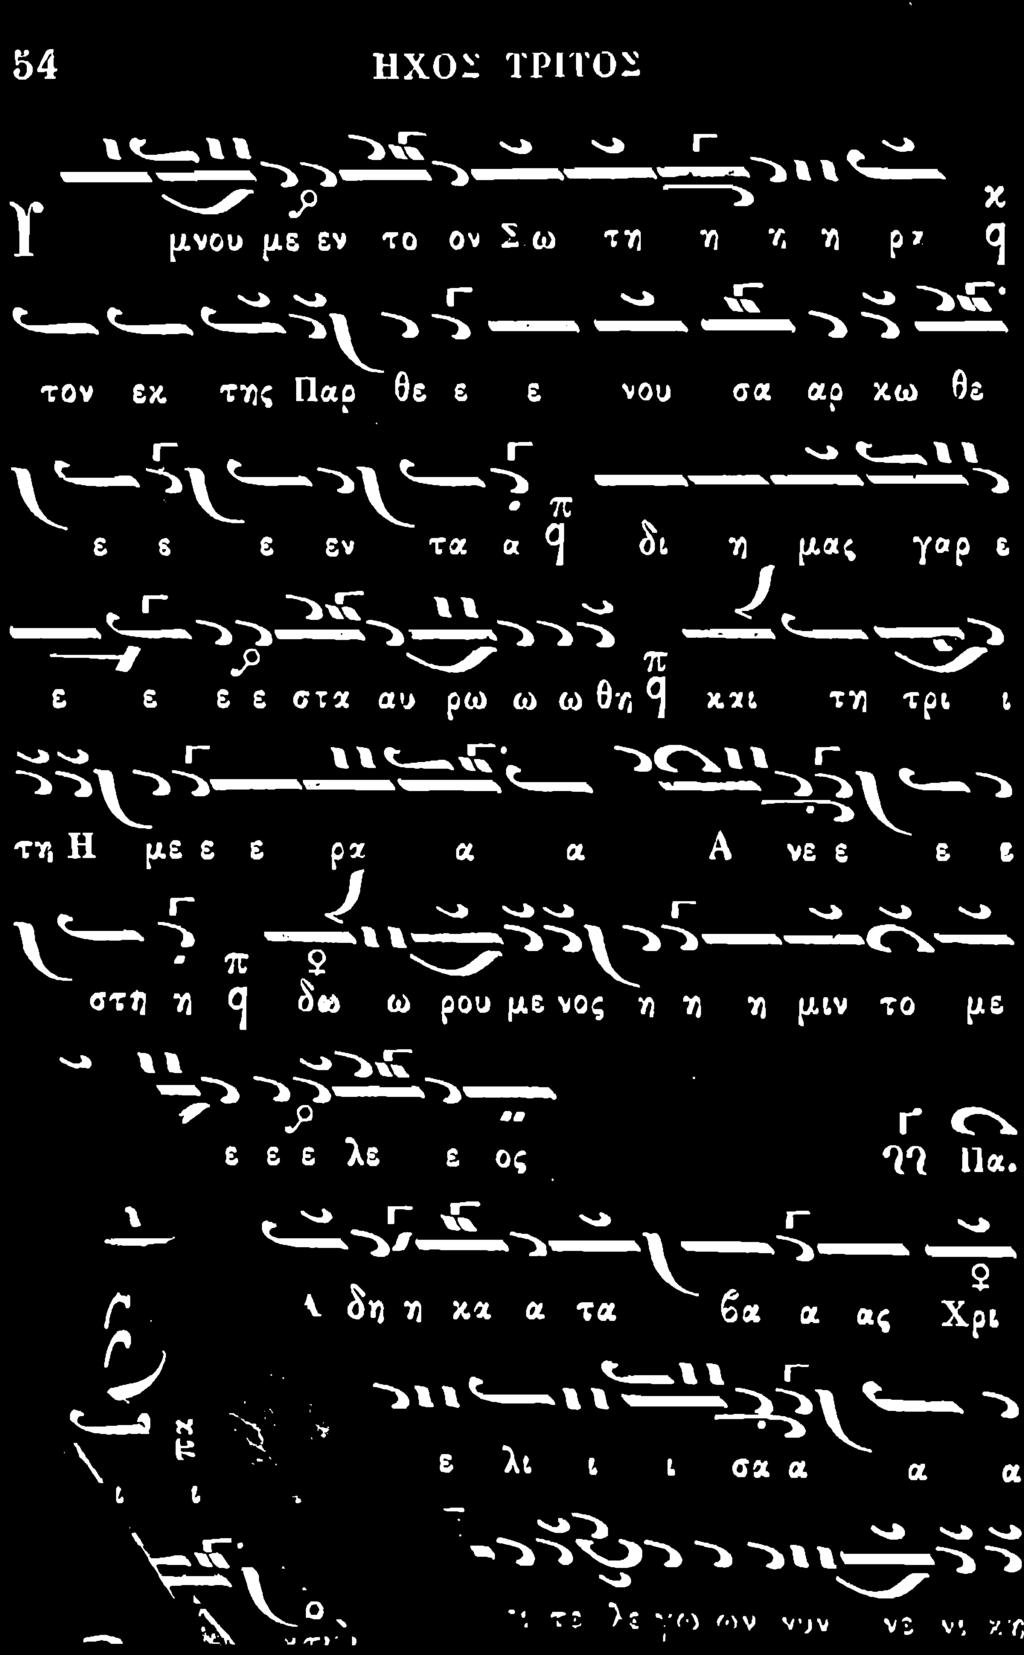 54 ΗΧΟΣ ΤΡΙΤΟΣ
Υ μνου με εν το ον Σω τη η η η ρα
τον εκ της Παρ θε ε ε νου σα αρ κω θε
ε ε ε εν τα α π q δι η μας γαρ ε
ε ε ε ε στα αυ ρω ω ω θη π q και τη τρι ι
τη Η με ε ε ρα α α Α νε ε ε ε
στη η π q δω ω ρου με νος η η η μιν το με
ε ε ε λε ε ος Πα.
δη η κα α τα βα α ας Χρι
ε λι ι ι σα α α α
ι ι
τε λε γω ων νυν νε νι κη